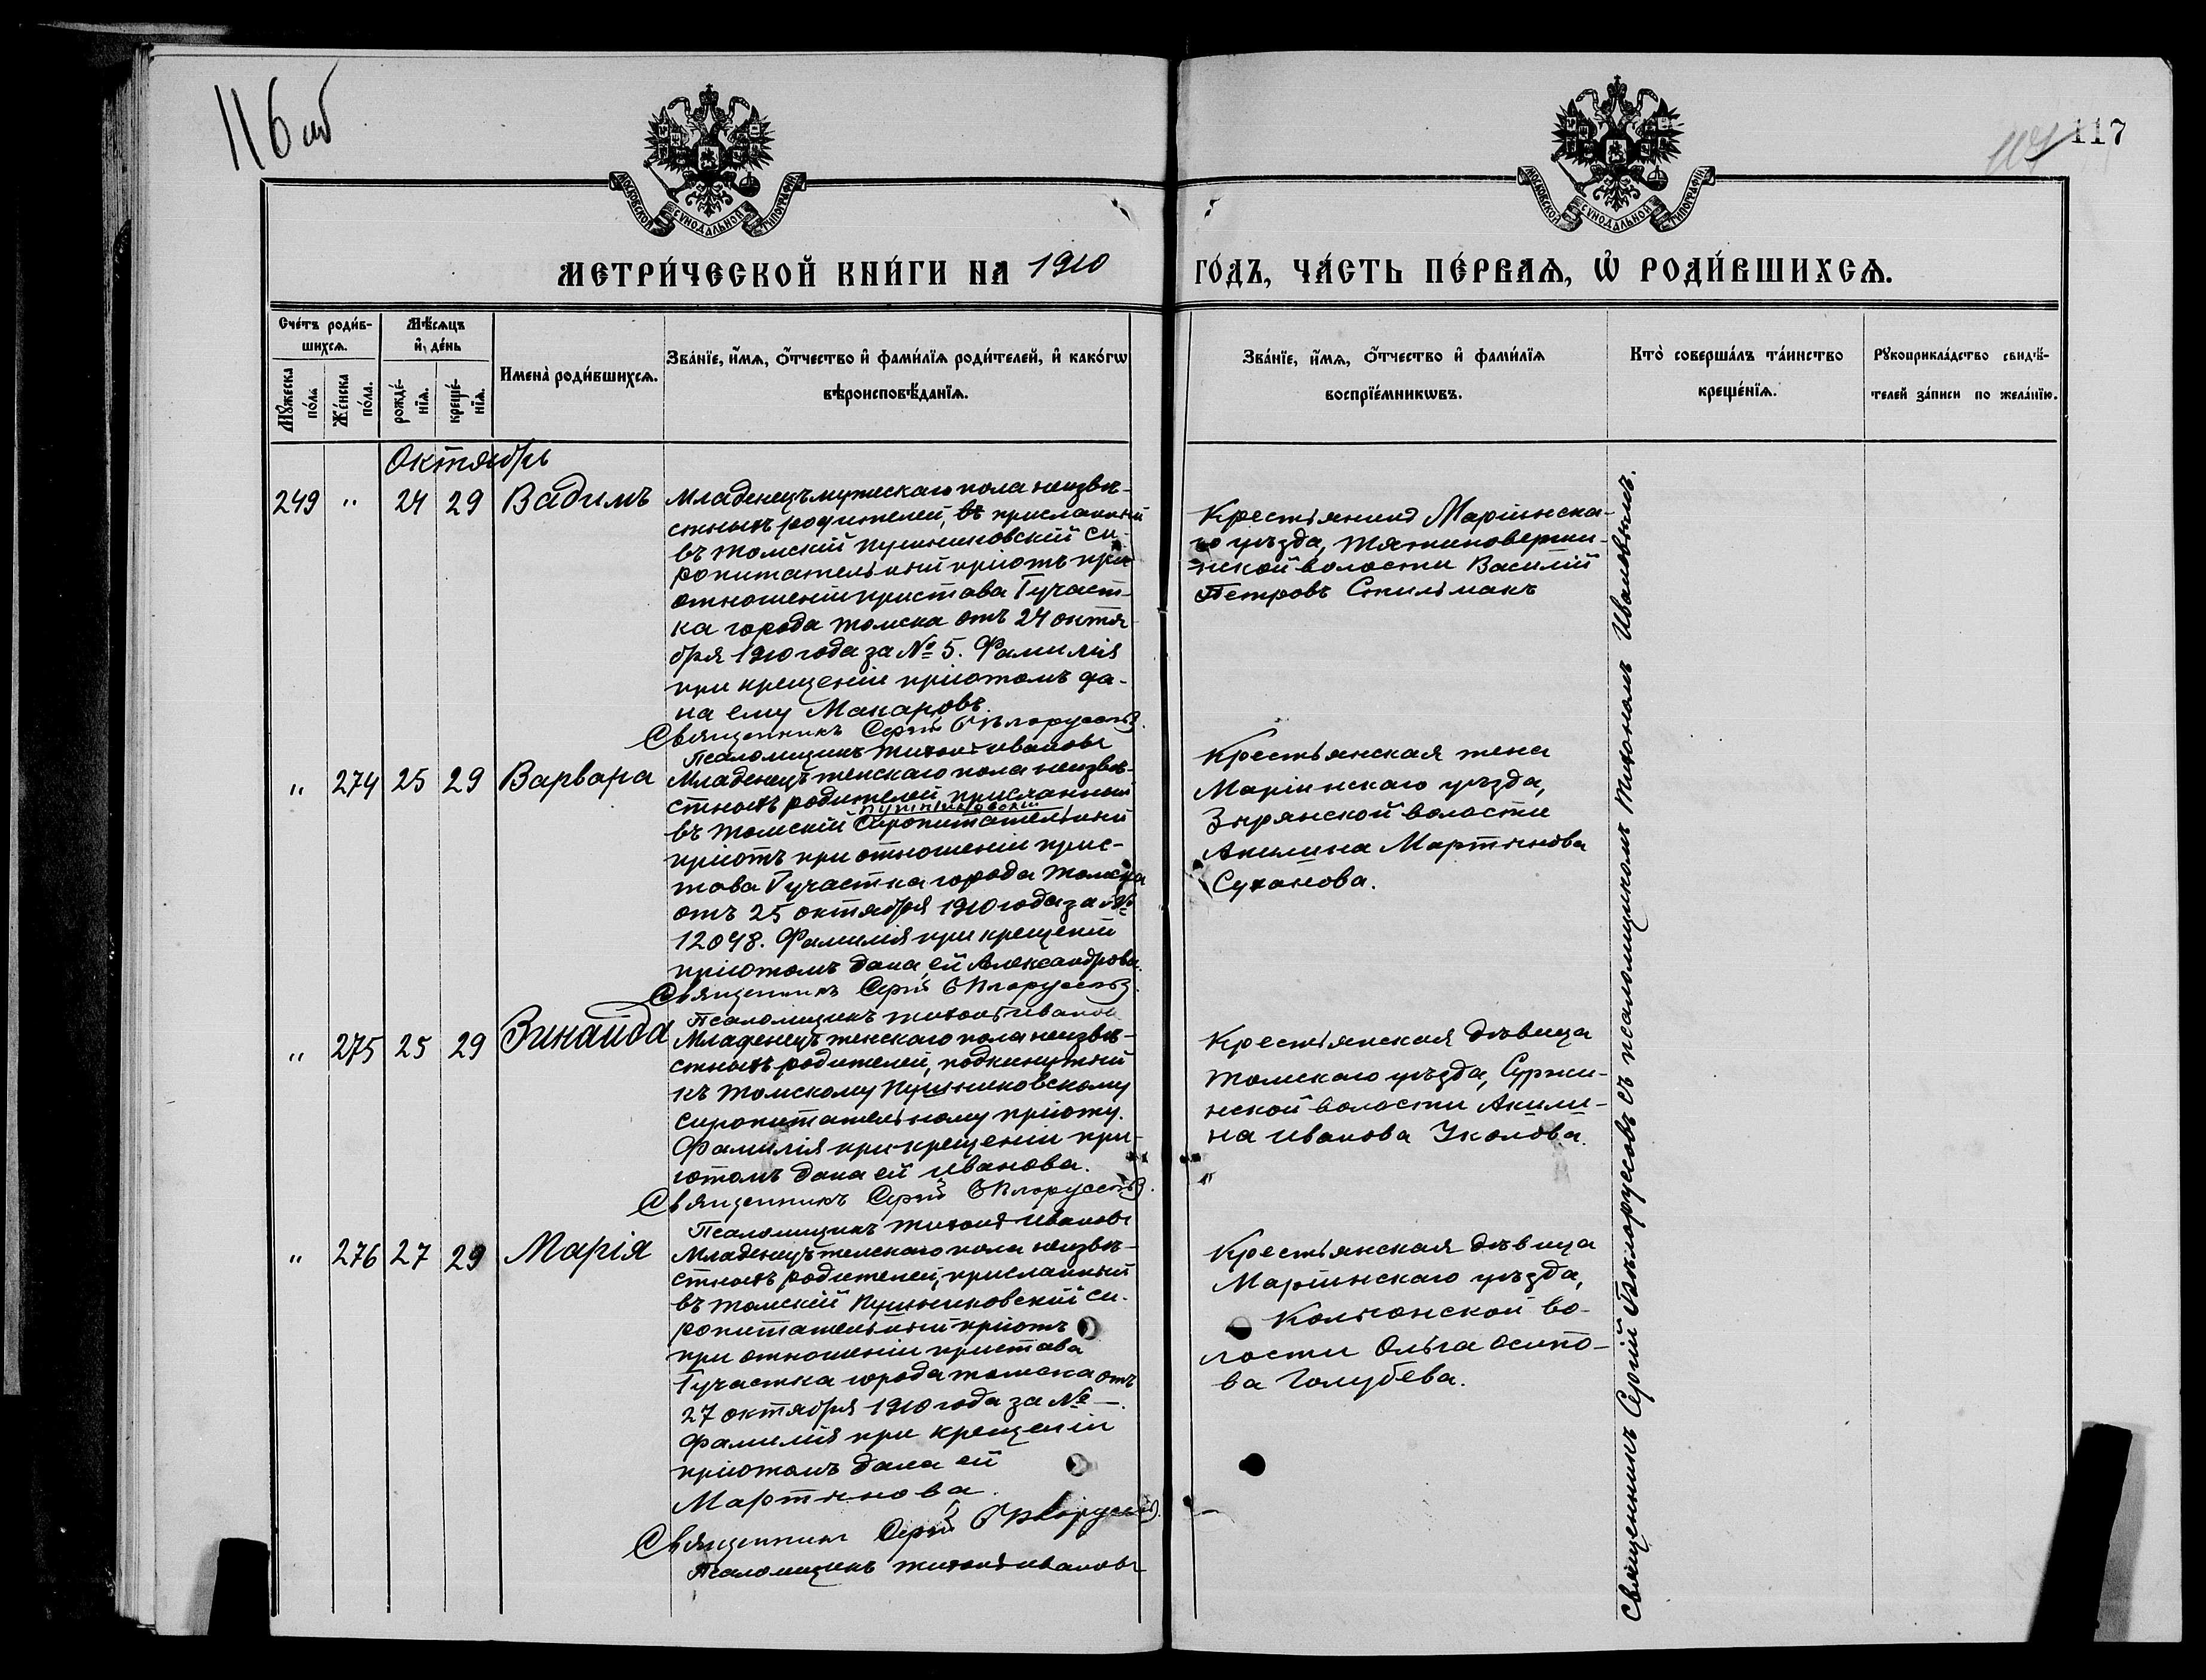 116 об
117
МОСКОВСКОЙ СѴНОДАЛЬНОЙ ТИПОГРАФІИ
МОСКОВСКОЙ СѴНОДАЛЬНОЙ ТИПОГРАФІИ
МЕТРИ́ЧЕСКОЙ КНИ́ГИ НА 1910 ГО́ДЪ, ЧА́СТЬ ПЕ́РВАѦ, Ѡ҆ РОДИ́ВШИХСѦ.
Сче́тъ роди́в-
шихсѧ.
Мꙋ́жеска
по́ла
Же́нска
по́ла.
Мѣ́сѧцъ
и҆ де́нь
рожде́-
нїѧ.
креще́-
нїѧ.
Имена̀ роди́вшихсѧ.
Зва́нїе, и҆́мѧ, ѻ҆́тчество и҆ фами́лїѧ роди́телей, и҆ како́гѡ
вѣроисповѣ́данїѧ.
Зва́нїе, и҆́мѧ, ѻ҆́тчество и҆ фами́лїѧ
воспрїе́мникѡвъ.
Кто̀ соверша́лъ та́инство
креще́нїѧ.
Рꙋкоприкла́дство свидѣ́-
телей за́писи по жела́нїю.
Октябрь
249 " 24 29 Вадимъ
Младенецъ мужескаго пола неизвѣ-
стныхъ родителей, въ присланный
въ Томскій Пушниковскій си-
ропитательный пріютъ при
отношеніи пристава I участ-
ка города Томска отъ 24 октя-
бря 1910 года за № 5. Фамилія
при крещеніи пріютомъ да-
на ему Макаровъ.
Священникъ Сергій Бѣлоруссовъ.
Псаломщикъ Тихонъ Ивановъ
Крестьянинъ Маріинска-
го уѣзда, Тяжиновершин-
нской волости Василій
Петровъ Спильмакъ
" 274 25 29 Варвара
Младенецъ женскаго пола неизвѣ-
стныхъ родителей, присланный
Пушниковскій
въ Томскій Сиропитательный
пріютъ при отношеніи прис-
това I участка города Томска
отъ 25 октября 1910 года за №
12098. Фамилія при крещеніи
пріютомъ дана ей Александрова.
Священникъ Сергій Бѣлоруссовъ.
Псаломщикъ Тихонъ Ивановъ
Крестьянская жена
Маріинскаго уѣзда,
Зырянской волости
Акилина Мартынова
Суханова.
" 275 25 29 Зинаида
Младенецъ женскаго пола неизвѣ-
стныхъ родителей, подкинутый
къ Томскому Пушниковскому
сиропитательному пріюту.
Фамилія при крещеніи прі-
ютомъ дана ей Иванова.
Священникъ Сергій Бѣлоруссовъ.
Псаломщикъ Тихонъ Ивановъ
Крестьянская дѣвица
Томскаго уѣзда, Суржи-
нской волости Акили-
на Иванова Уколова.
" 276 27 29 Марія
Младенецъ женскаго пола неизвѣ-
стныхъ родителей, присланный
въ Томскій Пушниковскій си-
ропитательный пріютъ
при отношеніи пристава
I участка города Томска отъ
27 октября 1910 года за № —.
Фамилія при крещеніи
пріютомъ дана ей
Мартынова.
Священникъ Сергій Бѣлоруссовъ.
Псаломщикъ Тихонъ Ивановъ
Крестьянская дѣвица
Маріинскаго уѣзда,
Колыонской во-
лости Ольга Осипо-
ва Голубева.
Священникъ Сергій Бѣлоруссовъ съ псаломщикомъ Тихономъ Ивановымъ.